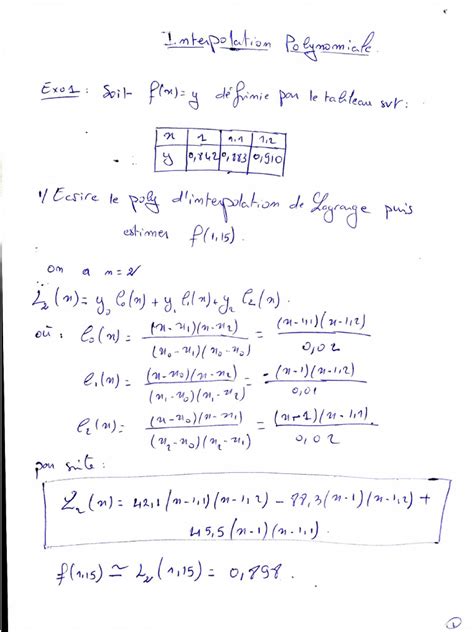 Interpolation Polynomiale.
Exo1 : Soit f(x) = y définie par le tableau svt :
x | 1 | 1,1 | 1,2
y | 0,842 | 0,883 | 0,910
1/ Ecrire le poly d'interpolation de Lagrange puis
estimer f(1,15).
on a n=2
L₂(x) = y₀ l₀(x) + y₁ l₁(x) + y₂ l₂(x).
où : l₀(x) = (x-x₁)(x-x₂) / (x₀-x₁)(x₀-x₂) = (x-1,1)(x-1,2) / 0,02
l₁(x) = (x-x₀)(x-x₂) / (x₁-x₀)(x₁-x₂) = -(x-1)(x-1,2) / 0,01
l₂(x) = (x-x₀)(x-x₁) / (x₂-x₀)(x₂-x₁) = (x-1)(x-1,1) / 0,02
par suite :
L₂(x) = 42,1(x-1,1)(x-1,2) - 88,3(x-1)(x-1,2) +
45,5(x-1)(x-1,1).
f(1,15) ≃ L₂(1,15) = 0,898.
1